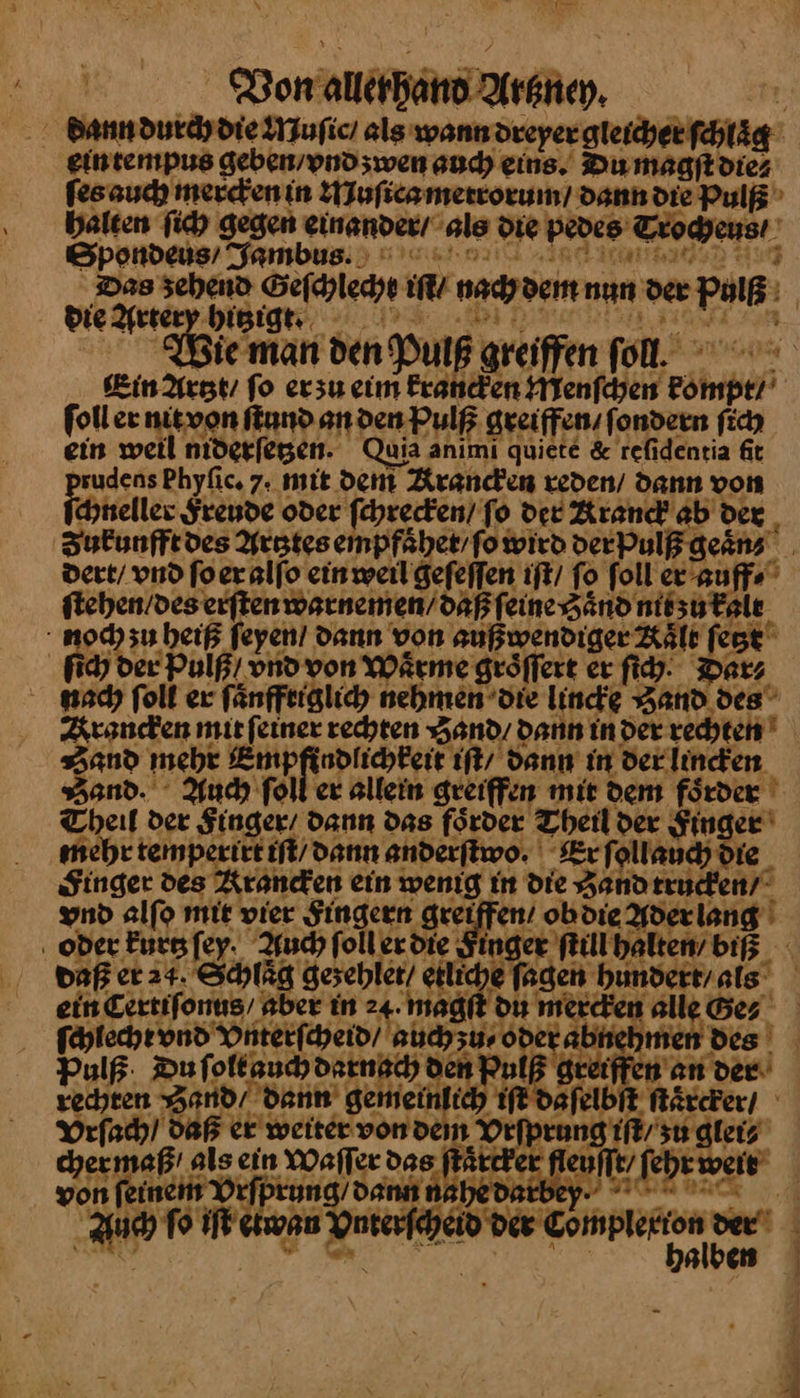 Von allerhand Artzney.
dann durch die Music/ als wann dreyer gleicher schlåg
ein tempus geben/ vnd zwen auch eins. Du magst die⸗
ses auch mercken in Musica metrorum/ dann die Pulß
halten sich gegen einander/ als die pedes Trocheus/
Spondeus/ Jambus.
Das zehend Geschlecht ist/ nach dem nun der Pulß
die Artery hitzigt.
Wie man den Pulß greiffen soll.
Ein Artzt/ so er zu eim krancken Menschen kompt/
soll er nit von stund an den Pulß greiffen/ sondern sich
ein weil nidersetzen. Quia animi quiete & residentia fit
prudens Physic. 7. mit dem Krancken reden/ dann von
schneller Freude oder schrecken/ so der Kranck ab der
Zukunfft des Artztes empfåhet/ so wird der Pulß geån⸗
dert/ vnd so er also ein weil gesessen ist/ so soll er auff⸗
stehen/ des ersten warnemen/ daß seine Hånd nit zu kalt
noch zu heiß seyen/ dann von außwendiger Kålt setzt
sich der Pulß/ vnd von Wårme grőssert er sich. Dar⸗
nach soll er sånfftiglich nehmen die lincke Hand des
Krancken mit seiner rechten Hand/ dann in der rechten
Hand mehr Empfindlichkeit ist/ dann in der lincken
Hand. Auch soll er allein greiffen mit dem főrder
Theil der Finger/ dann das főrder Theil der Finger
mehr temperirt ist/ dann anderstwo. Er soll auch die
Finger des Krancken ein wenig in die Hand trucken/
vnd also mit vier Fingern greiffen/ ob die Ader lang
oder kurtz sey. Auch soll er die Finger still halten/ biß
daß er 24. Schlåg gezehlet/ etliche sagen hundert/ als
ein Certisonus/ aber in 24. magst du mercken alle Ge⸗
schlecht vnd Vnterscheid/ auch zu⸗ oder abnehmen des
Pulß. Du solt auch darnach den Pulß greiffen an der
rechten Hand/ dann gemeinlich ist daselbst stårcker/
Vrsach/ daß er weiter von dem Vrsprung ist/ zu glei⸗
cher maß/ als ein Wasser das stårcker fleusst/ sehr weit
von seinem Vrsprung/ dann nahe darbey.
Auch so ist etwan Vnterscheid der Complexion der
halben